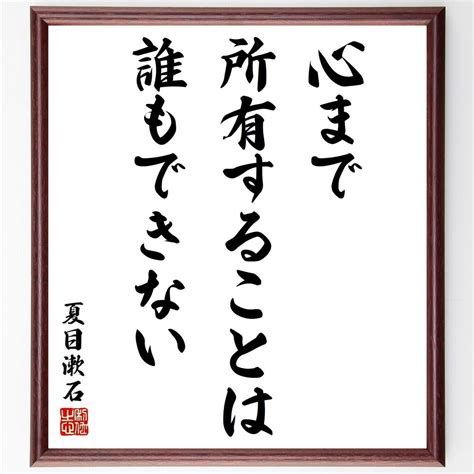 心まで
所有することは
誰もできない
夏目漱石